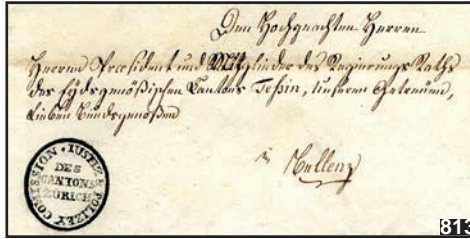 Den Hochgeachten Herren
Herren Præsident und Mitglieder des Regierungs Raths
des Eydsgenößischen Cantons Teßin, unseren Getreuen,
Lieben Bundsgenoßen
in Bellenz
IUSTIZ & POLIZEY COMISSION
DES
CANTONS
ZÜRICH
813